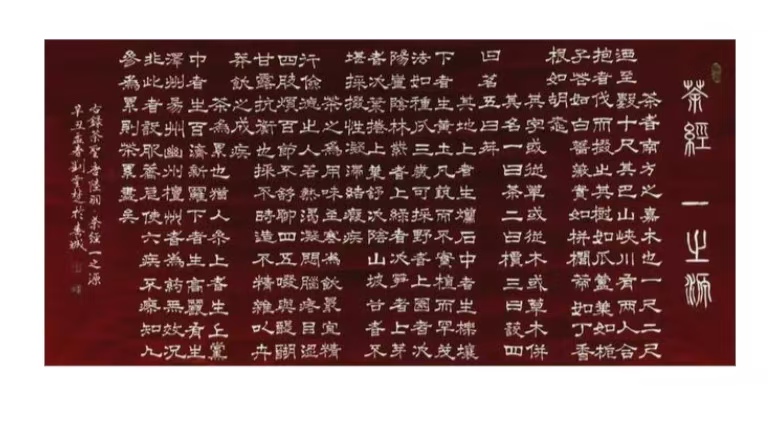 茶經 一之源
茶者南方之嘉木也一尺二尺
迺至數十尺其巴山峽川有兩人合
抱者伐而掇之其樹如瓜蘆葉如梔
子花如白薔薇實如栟櫚蒂如丁香
根如胡桃
其字或從草或從木或草木併
其名一曰茶二曰檟三曰蔎四
曰茗五曰荈
其地上者生爛石中者生櫟壤
下者生黃土凡藝而不實植而罕茂
法如種瓜三歲可採野者上園者次
陽崖陰林紫者上綠者次筍者上芽
者次葉捲上葉舒次陰山坡谷者不
堪採掇性凝滯結瘕疾
茶之為用味至寒為飲最宜精
行儉德之人若熱渴凝悶腦疼目澀
四肢煩百節不舒聊四五啜與醍醐
甘露抗衡也採不時造不精雜以卉
莽飲之成疾
茶為累也猶人參上者生上黨
中者生百濟新羅下者生高麗有生
澤州易州幽州檀州者為藥無效況
非此者設服薺苨使六疾不瘳知人
參為累則茶累盡矣
右錄茶聖唐陸羽茶經一之源
辛丑孟春劉於城